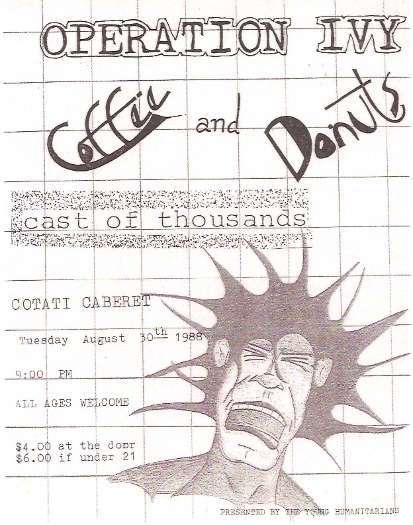 OPERATION IVY
Coffee and Donuts
cast of thousands
COTATI CABERET
Tuesday August 30th 1988
9:00 PM
ALL AGES WELCOME
$4.00 at the door
$6.00 if under 21
PRESENTED BY THE YOUNG HUMANITARIANS